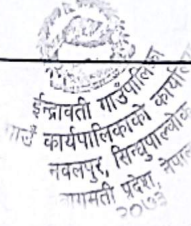 ईन्द्रावती गाउँपालिका
गाउँ कार्यपालिकाको कार्यालय
नवलपुर, सिन्धुपाल्चोक
बागमती प्रदेश, नेपाल
२०७३